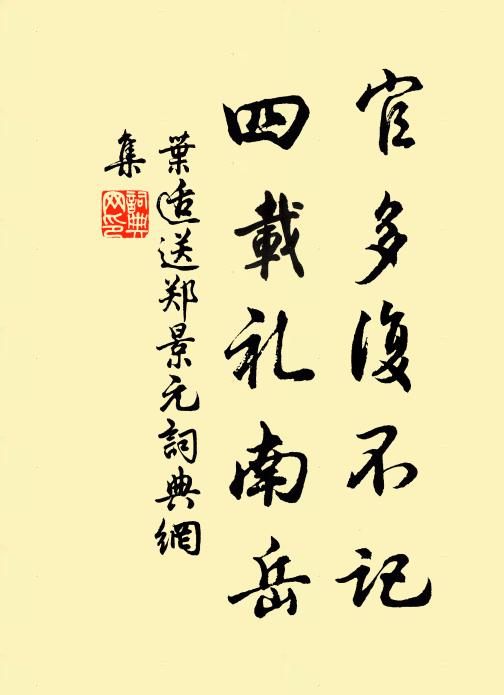 官多復不记
四載礼南岳
葉适送郑景元詞典網
集
詞典网印